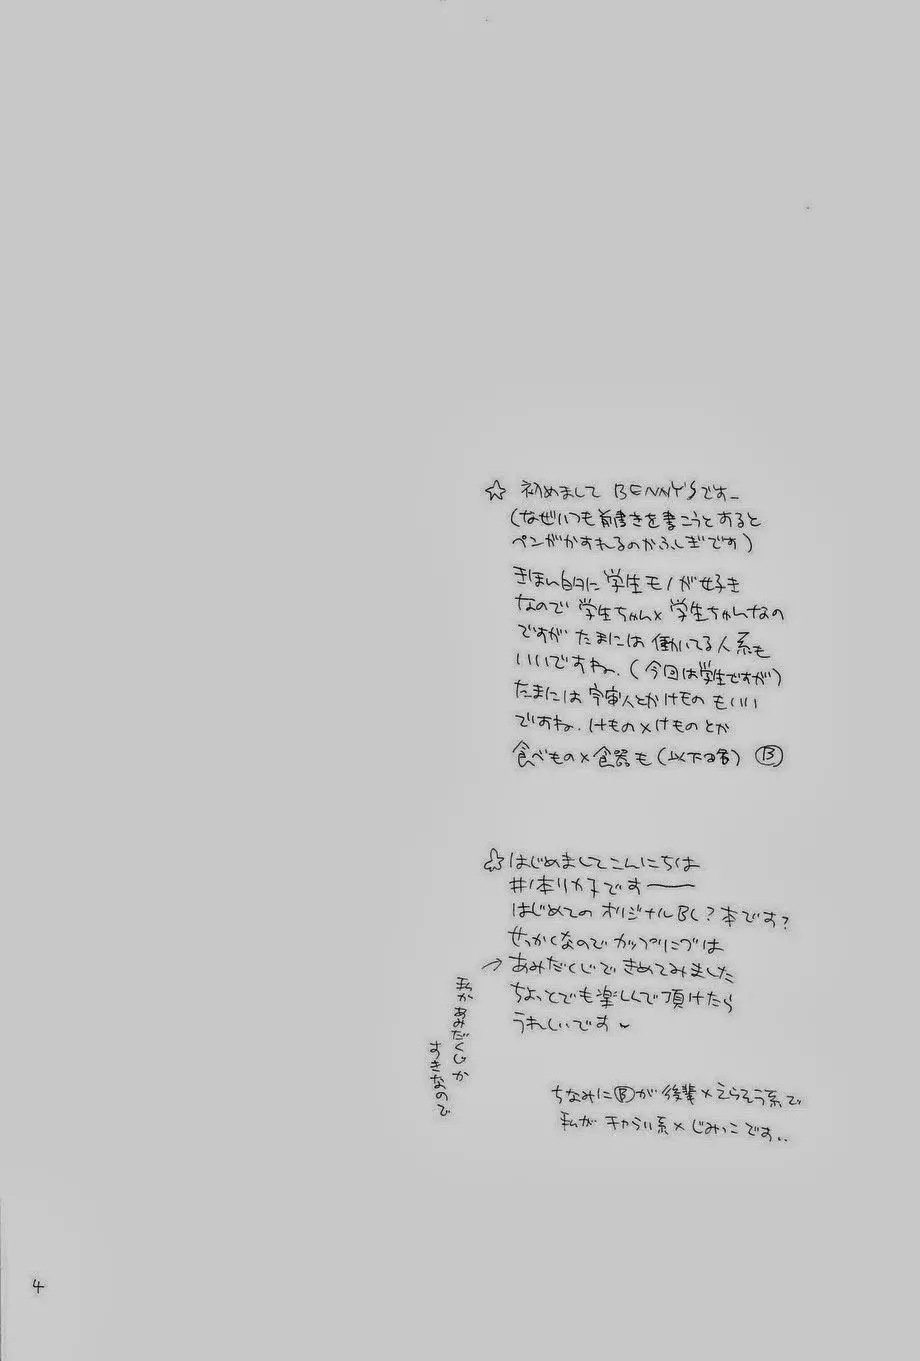 ☆ 初めまして BENNY'Sです_
(なぜいつも前書きを書こうとすると
ペンがかすれるのかふしぎです)
きほん的に 学生モノが好き
なので 学生ちゃん×学生ちゃんなの
ですが たまには 働いてる人系も
いいですね.(今回は学生ですが)
たまには 宇宙人とかけもの もいい
ですね. けもの×けものとか
食べもの×食器も(以下略) Ⓑ
☆はじめましてこんにちは
#本リカ子です――
はじめての オリジナルBL?本です?
せっかくなので カップリングは
→あみだくじで きめてみました
ちょっとでも楽しんで頂けたら
うれしいです
私があみだくじが
すきなので
ちなみにⒷが 後輩×えらそう系で
私が チャらい系×じみっこです..
4